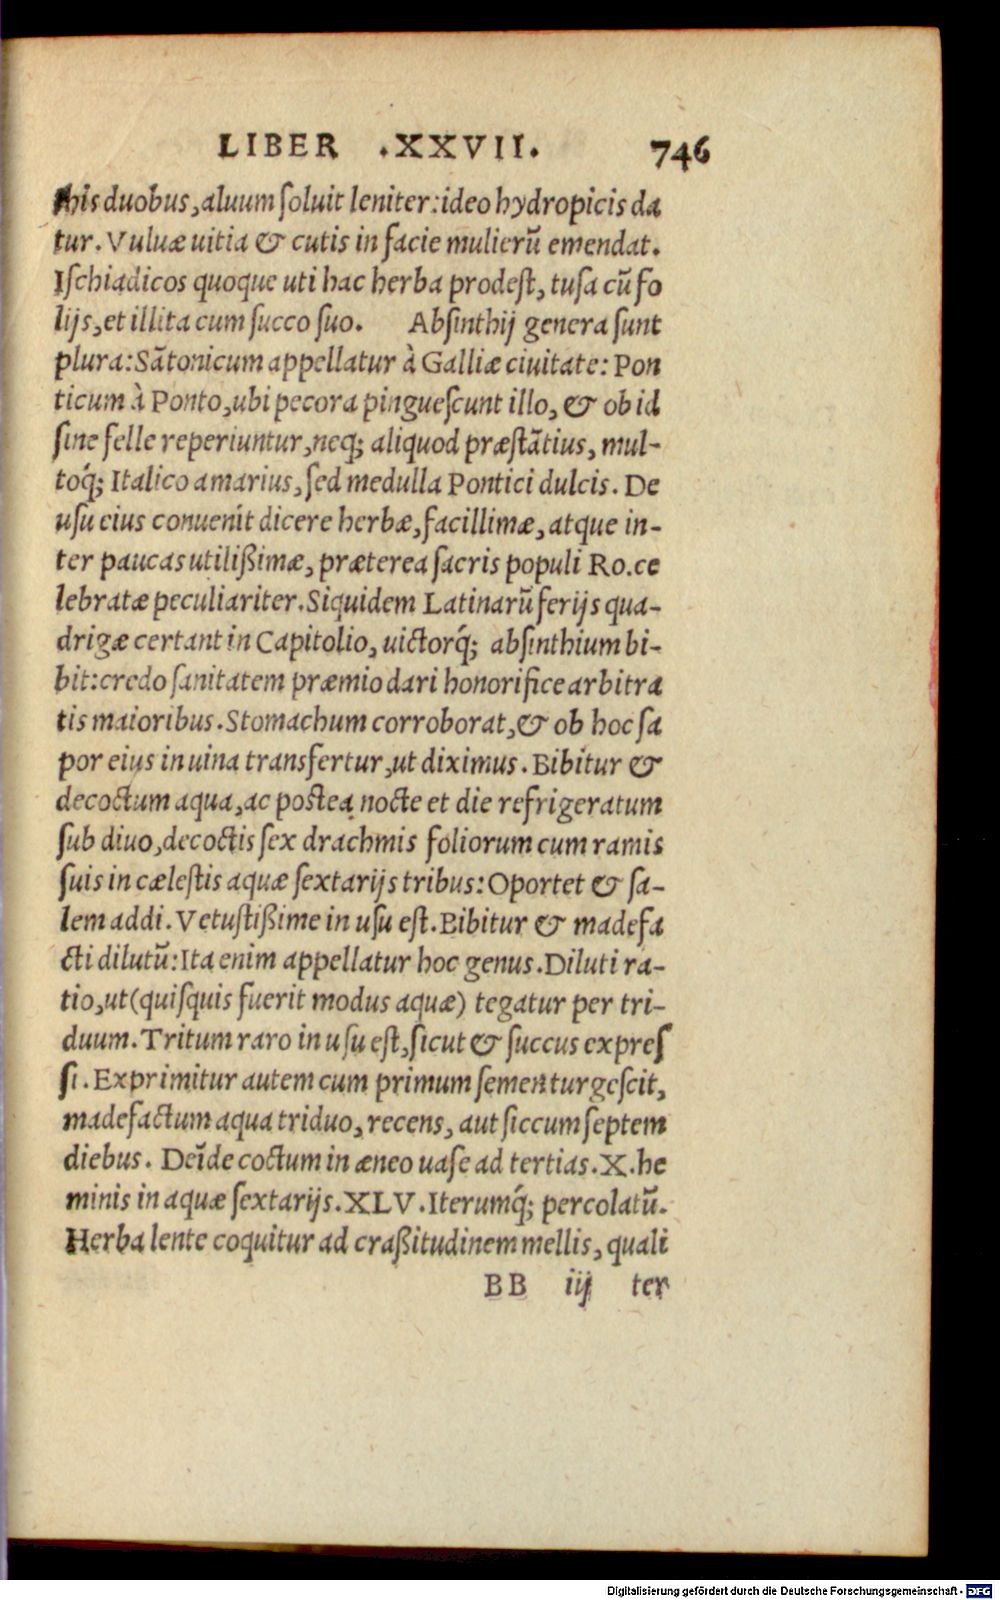 LIBER .XXVII. 746
his duobus, aluum ſoluit leniter: ideo hydropicis da
tur. Vuluæ uitia & cutis in facie mulierũ emendat.
Iſchiadicos quoque uti hac herba prodeſt, tuſa cũ fo
lijs, et illita cum ſucco ſuo. Abſinthij genera ſunt
plura: Sãtonicum appellatur à Galliæ ciuitate: Pon
ticum à Ponto, ubi pecora pingueſcunt illo, & ob id
ſine felle reperiuntur, neq; aliquod præſtãtius, mul-
toq́; Italico amarius, ſed medulla Pontici dulcis. De
uſu eius conuenit dicere herbæ, facillimæ, atque in-
ter paucas utilißimæ, præterea ſacris populi Ro. ce
lebratæ peculiariter. Siquidem Latinarũ ferijs qua-
drigæ certant in Capitolio, uictorq́; abſinthium bi-
bit: credo ſanitatem præmio dari honorifice arbitra
tis maioribus. Stomachum corroborat, & ob hoc ſa
por eius in uina transfertur, ut diximus. Bibitur &
decoctum aqua, ac poſtea nocte et die refrigeratum
ſub diuo, decoctis ſex drachmis foliorum cum ramis
ſuis in cæleſtis aquæ ſextarijs tribus: Oportet & ſa-
lem addi. Vetuſtißime in uſu eſt. Bibitur & madefa
cti dilutũ: Ita enim appellatur hoc genus. Diluti ra-
tio, ut (quiſquis fuerit modus aquæ) tegatur per tri-
duum. Tritum raro in uſu eſt, ſicut & ſuccus expreſ
ſi. Exprimitur autem cum primum ſemen turgeſcit,
madefactum aqua triduo, recens, aut ſiccum ſeptem
diebus. Deĩde coctum in æneo uaſe ad tertias. X. he
minis in aquæ ſextarijs. XLV. Iterumq́; percolatũ.
Herba lente coquitur ad craßitudinem mellis, quali
BB iij ter
Digitalisierung gefördert durch die Deutsche Forschungsgemeinschaft - DFG